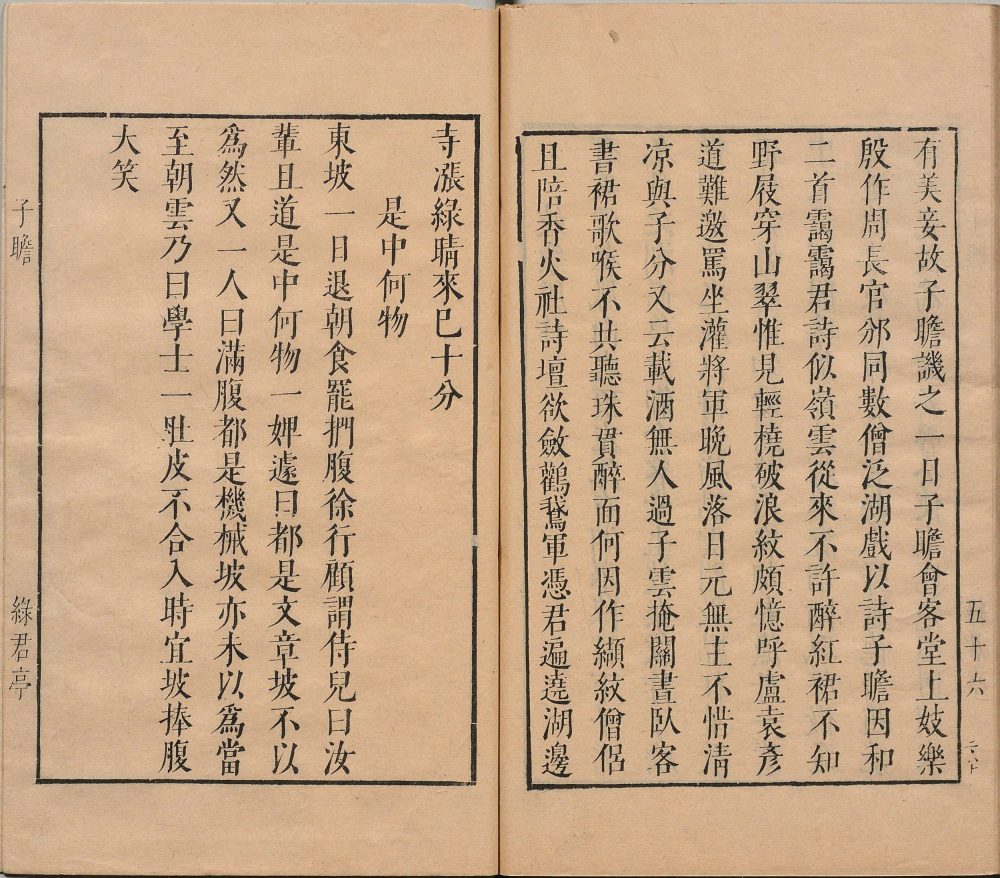 有美妾故子瞻譏之一日子瞻會客堂上妓樂
殷作周長官邠同數僧泛湖戲以詩子瞻因和
二首靄靄君詩似嶺雲從來不許醉紅裙不知
野屐穿山翠惟見輕橈破浪紋頗憶呼盧袁彥
道難邀罵坐灌將軍晚風落日元無主不惜清
凉與子分又云載酒無人過子雲掩關晝臥客
書裙歌喉不共聽珠貫醉面何因作纈紋僧侶
且陪香火社詩壇欲斂鸛鵞軍憑君遍遶湖邊
五十六
寺漲綠晴來已十分
是中何物
東坡一日退朝食罷捫腹徐行顧謂侍兒曰汝
輩且道是中何物一婢遽曰都是文章坡不以
爲然又一人曰滿腹都是機械坡亦未以爲當
至朝雲乃曰學士一肚皮不合入時宜坡捧腹
大笑
子瞻
綠君亭